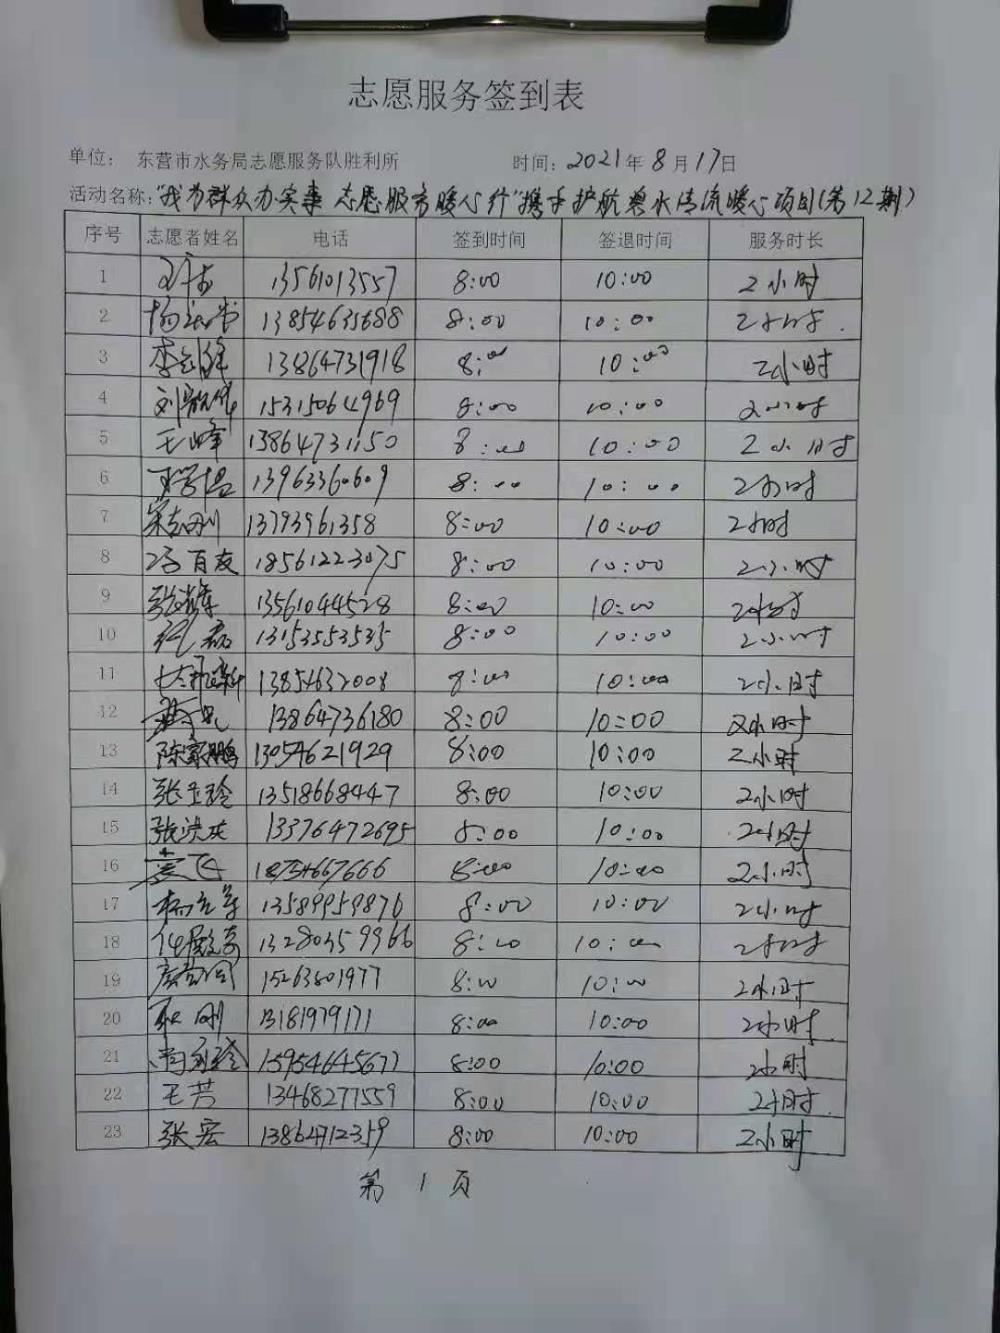 志愿服务签到表
单位： 东营市水务局志愿服务队胜利所 时间：2021年8月17日
活动名称："我为群众办实事 志愿服务暖心行"携手护航碧水清流暖心项目(第12期)
序号 志愿者姓名 电话 签到时间 签退时间 服务时长
1 13561013557 8:00 10:00 2小时
2 13854635688 8:00 10:00 2小时.
3 13864731918 8:00 10:00 2小时
4 15315064969 8:00 10:00 2小时
5 王峰 13864731150 8:00 10:00 2小时
6 13963360609 8:00 10:00 2小时
7 宋志刚 13793961358 8:00 10:00 2小时
8 冯百友 18561223075 8:00 10:00 2小时
9 13561044528 8:00 10:00 2小时
10 纪磊 13153553535 8:00 10:00 2小时
11 13854632008 8:00 10:00 2小时
12 13864736180 8:00 10:00 2小时
13 陈家鹏 13054621929 8:00 10:00 2小时
14 张玉玲 13518668447 8:00 10:00 2小时
15 张洪庆 13376472695 8:00 10:00 2小时
16 18754667666 8:00 10:00 2小时
17 13589959876 8:00 10:00 2小时
18 13280359966 8:00 10:00 2小时
19 15263801977 8:00 10:00 2小时
20 耿刚 13181979171 8:00 10:00 2小时
21 15954645677 8:00 10:00 2小时
22 王芳 13468277559 8:00 10:00 2小时.
23 张宏 13864712359 8:00 10:00 2小时
第 1 页